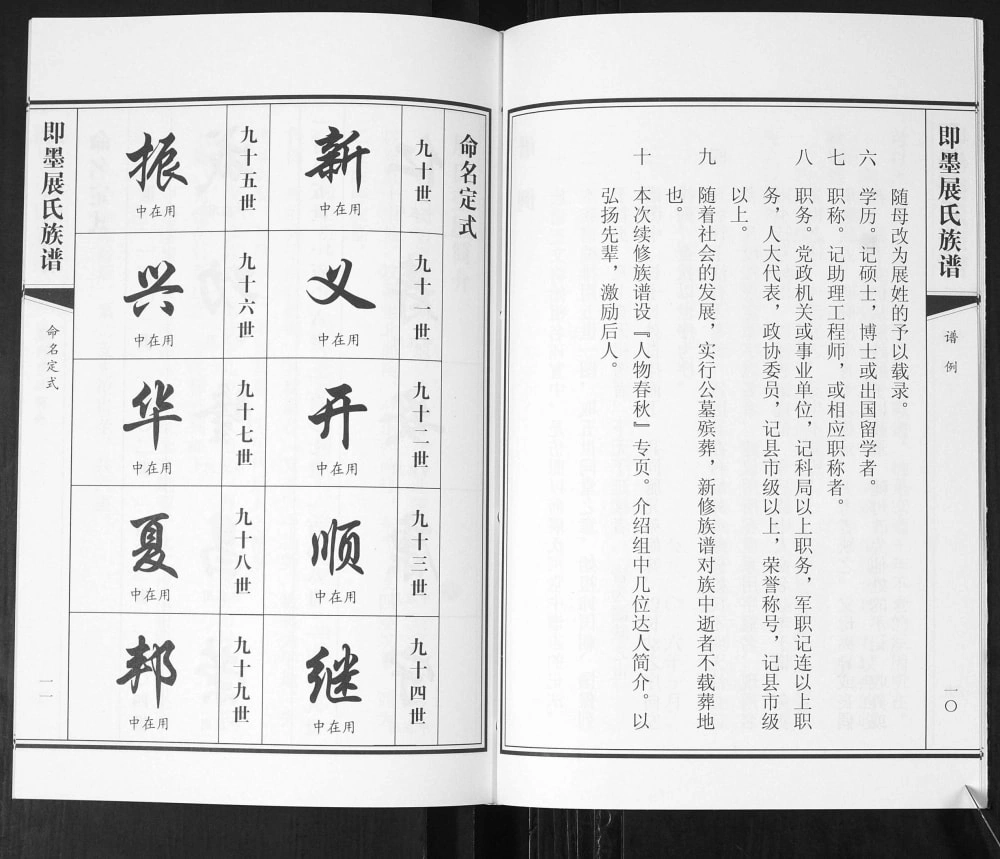 即墨展氏族谱
谱例
一〇
随母改为展姓的予以载录。
六 学历。记硕士，博士或出国留学者。
七 职称。记助理工程师，或相应职称者。
八 职务。党政机关或事业单位，记科局以上职务，军职记连以上职
务，人大代表，政协委员，记县市级以上，荣誉称号，记县市级
以上。
九 随着社会的发展，实行公墓殡葬，新修族谱对族中逝者不载葬地
也。
十 本次续修族谱设『人物春秋』专页。介绍组中几位达人简介。以
弘扬先辈，激励后人。
命名定式
九十世
新
中在用
九十一世
义
中在用
九十二世
开
中在用
九十三世
顺
中在用
九十四世
继
中在用
九十五世
振
中在用
九十六世
兴
中在用
九十七世
华
中在用
九十八世
夏
中在用
九十九世
邦
中在用
即墨展氏族谱
命名定式
一一